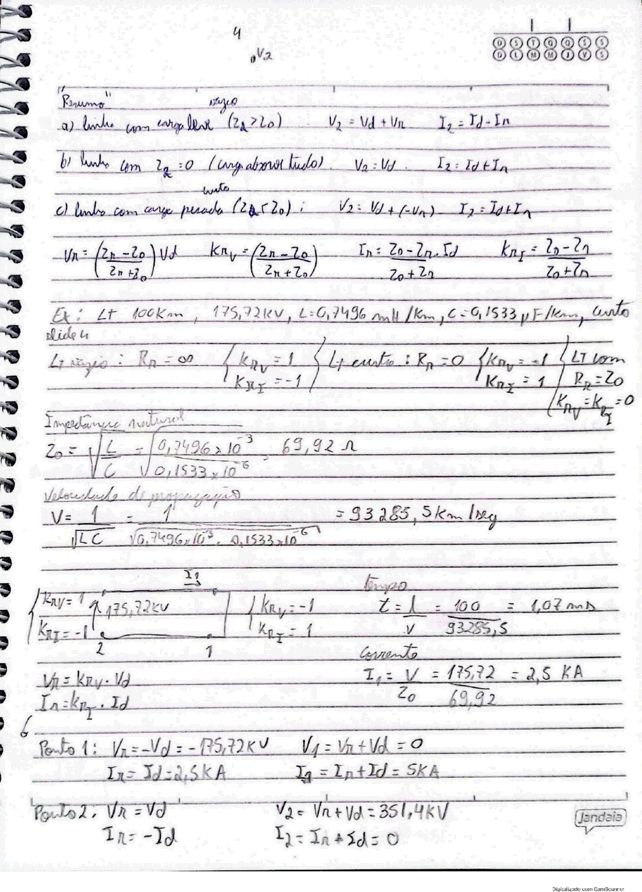 4
V2
D S T Q Q S S
D L M M J V S
"Resumo" vazio
a) linha com carga leve (Zr > Z0) V2 = Vd + Vr I2 = Id - Ir
b) linha com Zr = 0 (carga absorve tudo) V2 = Vd I2 = Id + Ir
curto
c) linha com carga pesada (Zr < Z0): V2 = Vd + (-Vr) I2 = Id + Ir
Vr = (Zr - Z0 / Zr + Z0) Vd KRV = (Zr - Z0 / Zr + Z0) Ir = Z0 - Zr / Z0 + Zr . Id KRI = Z0 - Zr / Z0 + Zr
Ex: LT 100Km, 175,72KV, L=0,7496 mH/Km, C=0,1533 μF/Km, curto
slide 4
LT vazio: Rr = ∞ { KRV = 1 } LT curto: Rr = 0 { KRV = -1 } LT com
KRI = -1 KRI = 1 Rr = Z0
KRV = KRI = 0
Impedância natural
Z0 = √L/C = √0,7496x10^-3 / 0,1533x10^-6 = 69,92 Ω
Velocidade de propagação
V = 1/√LC = 1/√0,7496x10^-3 . 0,1533x10^-6 = 93285,5 Km/seg
I1 tempo
{ KRV = 1 175,72KV { KRV = -1 t = l/v = 100/93285,5 = 1,07 ms
KRI = -1 KRI = 1
2 1 Corrente
Vr = KRV . Vd I1 = V/Z0 = 175,72/69,92 = 2,5 KA
Ir = KRI . Id
6
Ponto 1: Vr = -Vd = -175,72KV V1 = Vr + Vd = 0
Ir = Id = 2,5KA I1 = Ir + Id = 5KA
Ponto 2. Vr = Vd V2 = Vr + Vd = 351,4KV
Ir = -Id I2 = Ir + Id = 0
Jandaia
Digitalizado com CamScanner